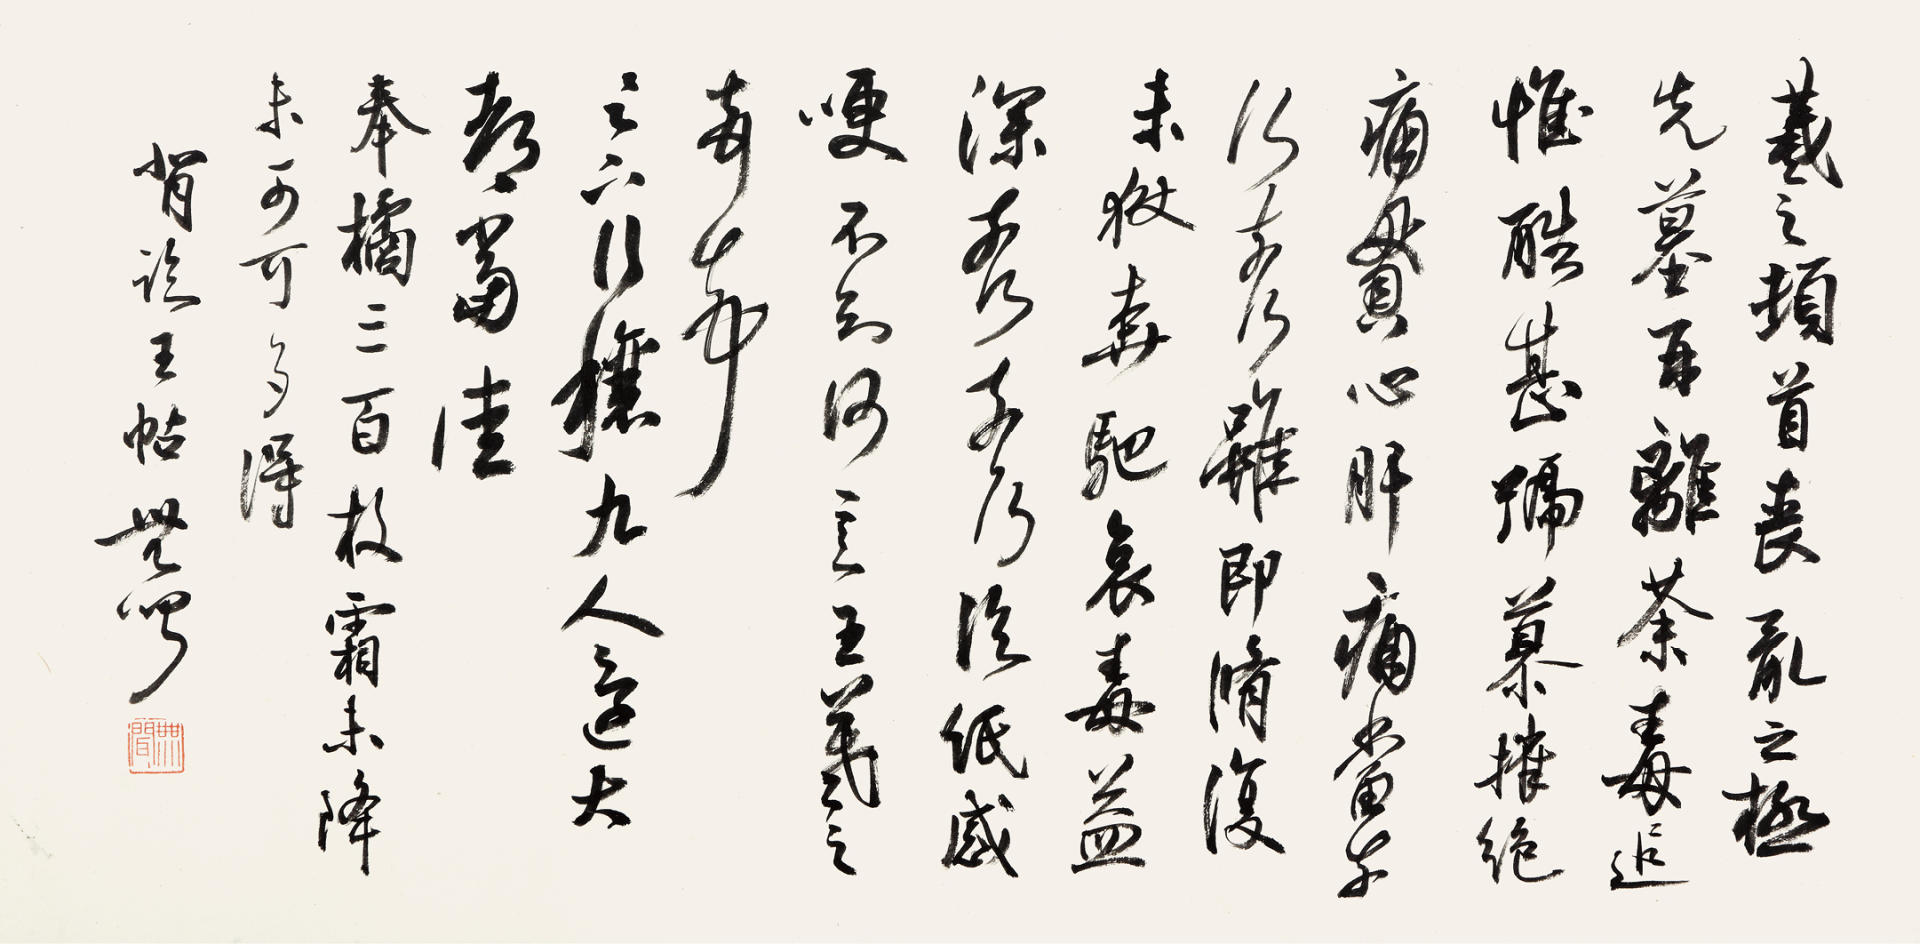 羲之頓首喪亂之極
先墓再離荼毒追
惟酷甚號慕摧絕
痛貫心肝痛當奈
何奈何雖即脩復
未獲奔馳哀毒益
深奈何奈何臨紙感
哽不知何言王羲之
再拜
足下行穰九人還大
都當佳
奉橘三百枚霜未降
未可可多得
背臨王帖無聞
無聞